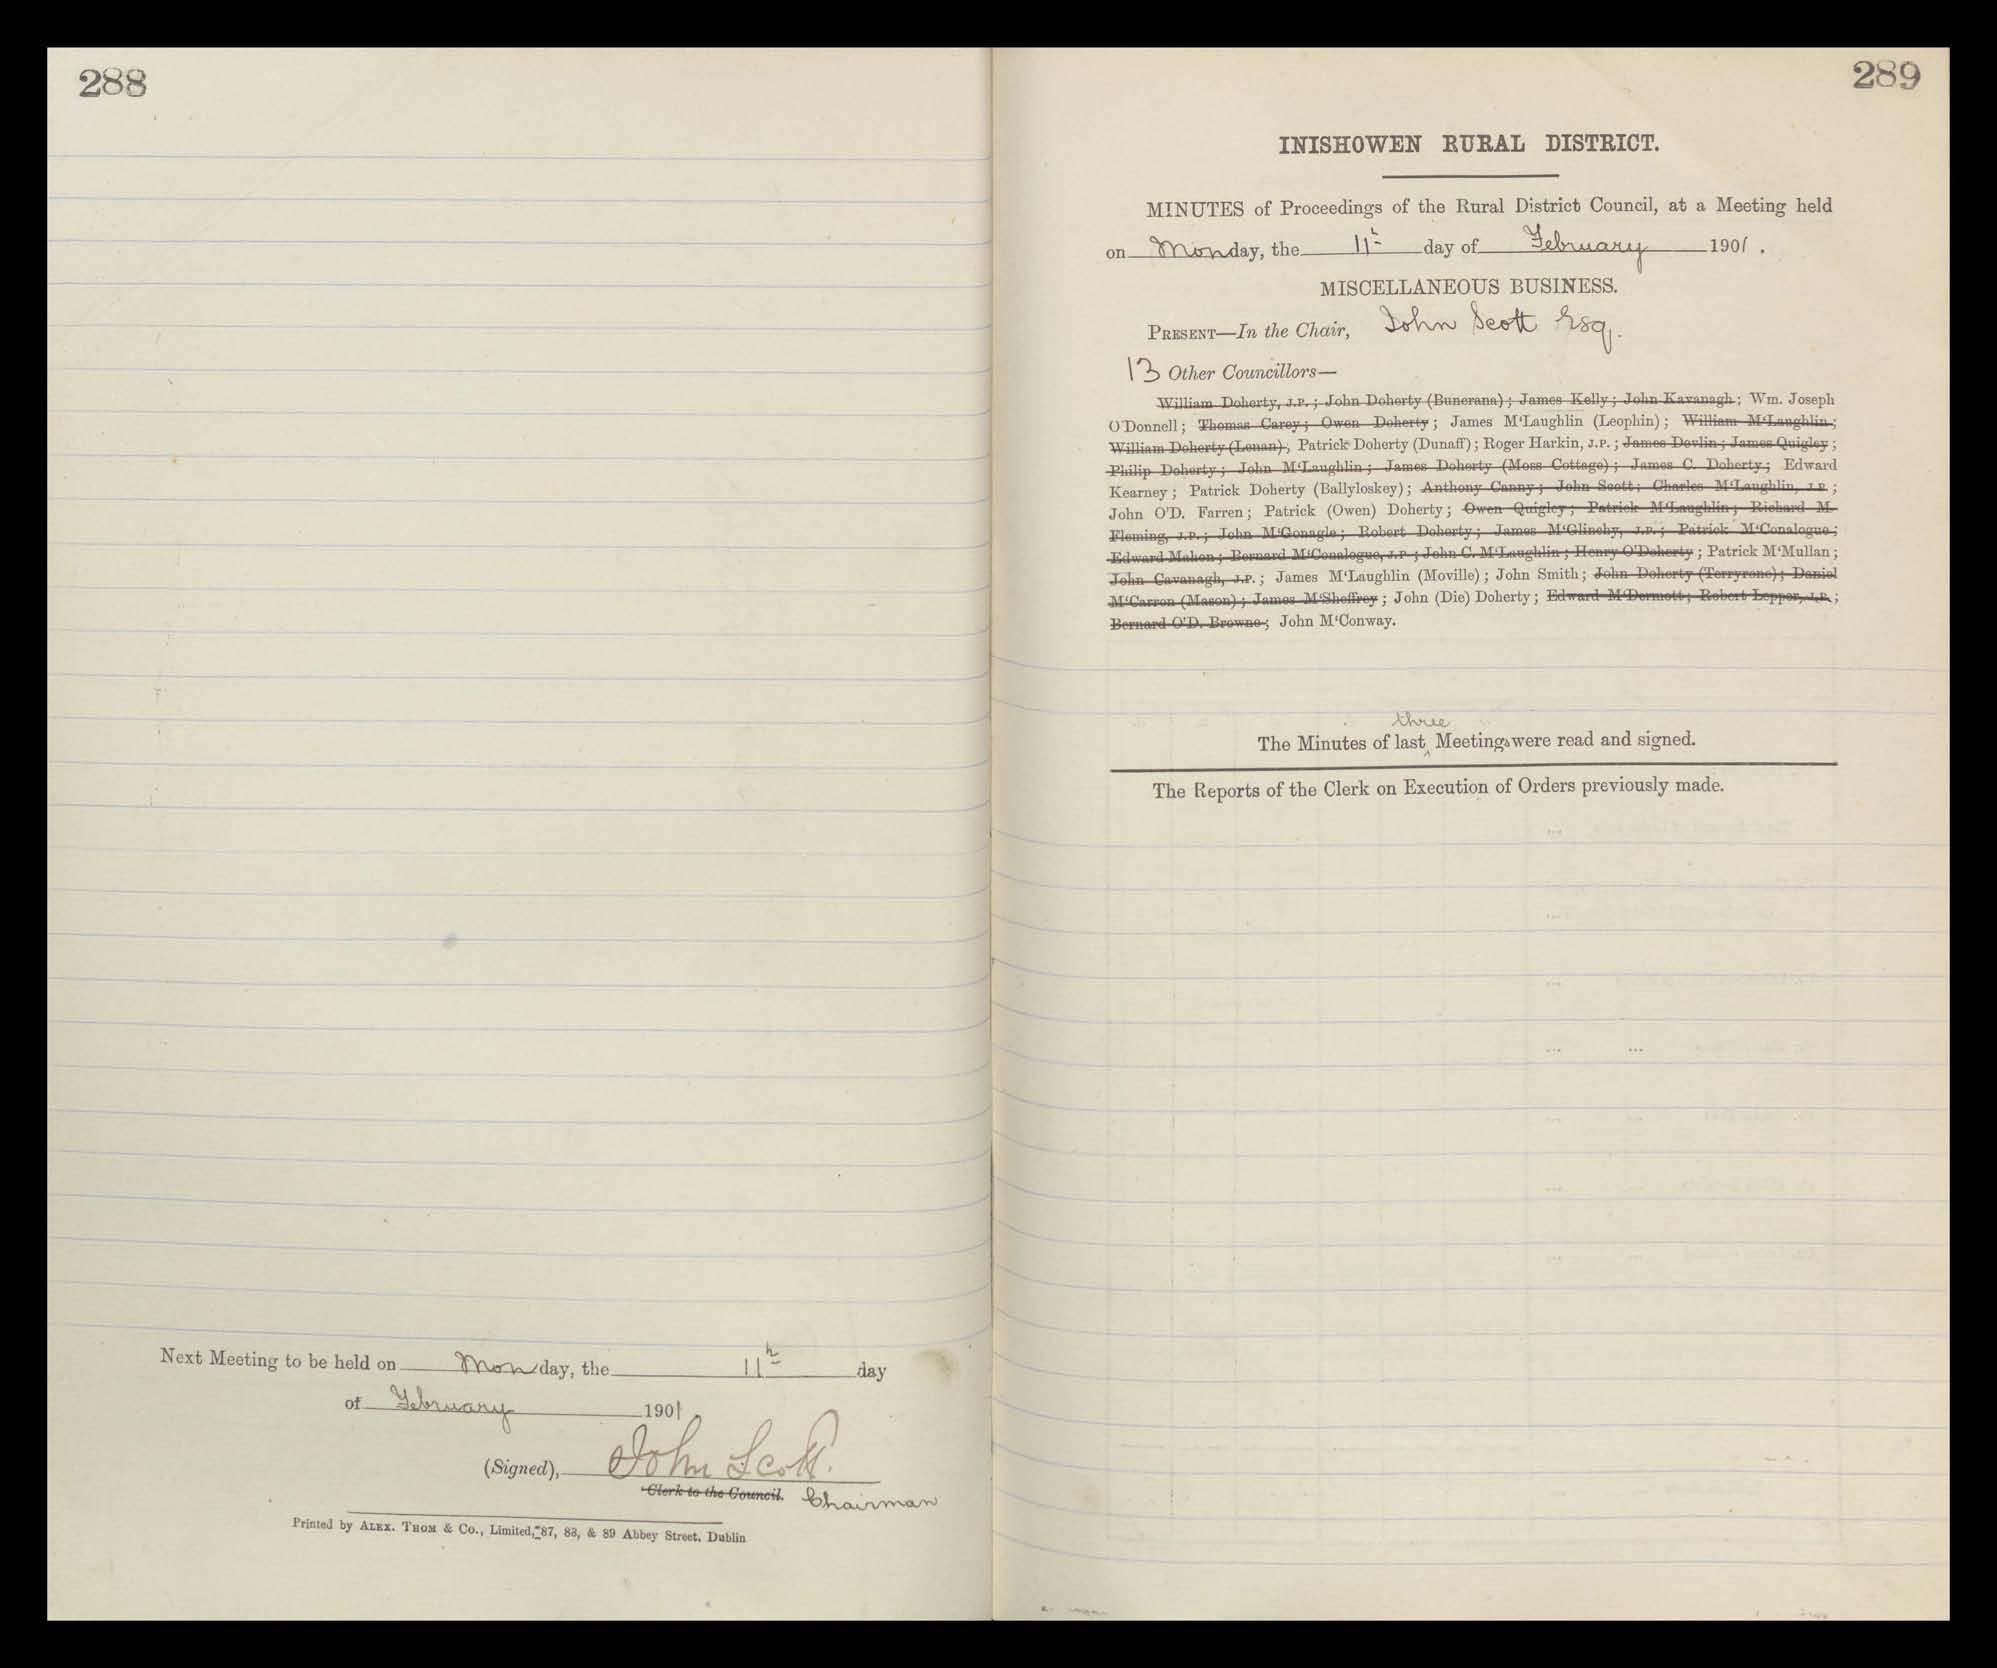 288
Next Meeting to be held on Monday, the 11th day
of February 1901
(Signed), John Scott.
Clerk to the Council. Chairman
Printed by ALEX. THOM & Co., Limited, 87, 88, & 89 Abbey Street, Dublin
289
INISHOWEN RURAL DISTRICT.
MINUTES of Proceedings of the Rural District Council, at a Meeting held
on Monday, the 11th day of February 1901.
MISCELLANEOUS BUSINESS.
PRESENT—In the Chair, John Scott Esq.
13 Other Councillors—
William Doherty, J.P.; John Doherty (Buncrana); James Kelly; John Kavanagh; Wm. Joseph
O'Donnell; Thomas Carey; Owen Doherty; James M'Laughlin (Leophin); William M'Laughlin;
William Doherty (Lenan); Patrick Doherty (Dunaff); Roger Harkin, J.P.; James Devlin; James Quigley;
Philip Doherty; John M'Laughlin; James Doherty (Moss Cottage); James C. Doherty; Edward
Kearney; Patrick Doherty (Ballyloskey); Anthony Canny; John Scott; Charles M'Laughlin, J.P.;
John O'D. Farren; Patrick (Owen) Doherty; Owen Quigley; Patrick M'Laughlin; Richard M.
Fleming, J.P.; John M'Gonagle; Robert Doherty; James M'Glinchy, J.P.; Patrick M'Conalogue;
Edward Mahon; Bernard M'Conalogue, J.P.; John C. M'Laughlin; Henry O'Doherty; Patrick M'Mullan;
John Cavanagh, J.P.; James M'Laughlin (Moville); John Smith; John Doherty (Terryrone); Daniel
M'Carron (Mason); James M'Sheffrey; John (Die) Doherty; Edward M'Dermott; Robert Lepper, J.P.;
Bernard O'D. Browne; John M'Conway.
three
The Minutes of last Meetings were read and signed.
The Reports of the Clerk on Execution of Orders previously made.